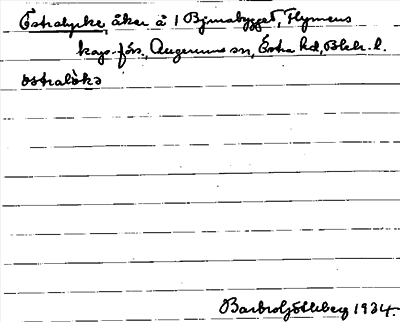 Östralycke, åker å 1 Björnabygget, Flymens
kap. förs., Augerums sn, Östra hd, Blek. l.
östralòkə
Barbro Götheberg 1934.